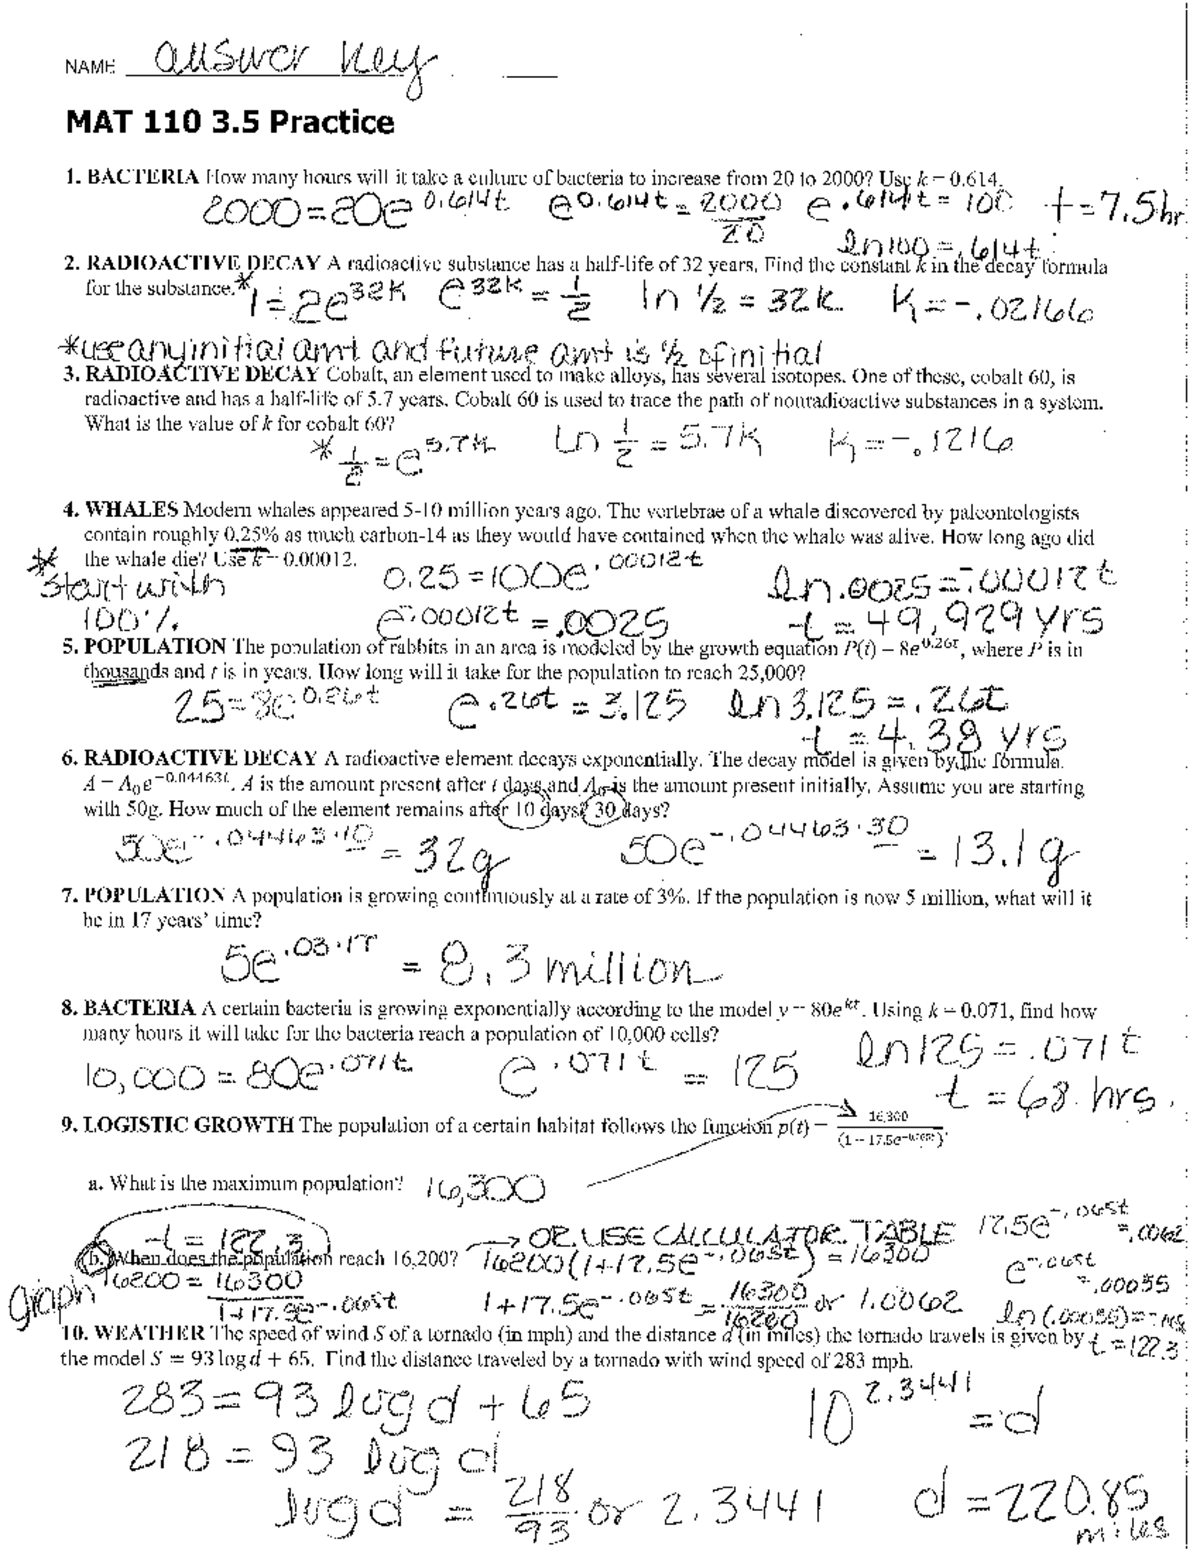 NAME answer key
MAT 110 3.5 Practice
1. BACTERIA How many hours will it take a culture of bacteria to increase from 20 to 2000? Use k = 0.614.
2000 = 20e^0.614t e^0.614t = 2000/20 e^.614t = 100 t = 7.5 hr
ln100 = .614t
2. RADIOACTIVE DECAY A radioactive substance has a half-life of 32 years. Find the constant k in the decay formula
for the substance. * 1 = 2e^32k e^32k = 1/2 ln 1/2 = 32k K = -.02166
*use any initial amt and future amt is 1/2 of initial
3. RADIOACTIVE DECAY Cobalt, an element used to make alloys, has several isotopes. One of these, cobalt 60, is
radioactive and has a half-life of 5.7 years. Cobalt 60 is used to trace the path of nonradioactive substances in a system.
What is the value of k for cobalt 60?
* 1/2 = e^5.7k ln 1/2 = 5.7k K = -.1216
4. WHALES Modern whales appeared 5-10 million years ago. The vertebrae of a whale discovered by paleontologists
contain roughly 0.25% as much carbon-14 as they would have contained when the whale was alive. How long ago did
the whale die? Use k = 0.00012.
* start with 0.25 = 100e^.00012t ln .0025 = -.00012t
100% e^-.00012t = .0025 t = 49,929 yrs
5. POPULATION The population of rabbits in an area is modeled by the growth equation P(t) = 8e^0.26t, where P is in
thousands and t is in years. How long will it take for the population to reach 25,000?
25 = 8e^0.26t e^.26t = 3.125 ln 3.125 = .26t
t = 4.38 yrs
6. RADIOACTIVE DECAY A radioactive element decays exponentially. The decay model is given by the formula.
A = A₀e^−0.04463t. A is the amount present after t days and A₀ is the amount present initially. Assume you are starting
with 50g. How much of the element remains after 10 days? 30 days?
50e^-.04463·10 = 32g 50e^-.04463·30 = 13.1g
7. POPULATION A population is growing continuously at a rate of 3%. If the population is now 5 million, what will it
be in 17 years' time?
5e^.03·17 = 8.3 million
8. BACTERIA A certain bacteria is growing exponentially according to the model y = 80e^kt. Using k = 0.071, find how
many hours it will take for the bacteria reach a population of 10,000 cells?
10,000 = 80e^.071t e^.071t = 125 ln125 = .071t
t = 68 hrs.
9. LOGISTIC GROWTH The population of a certain habitat follows the function p(t) = 16,300
a. What is the maximum population? 16,300
t = 122.3 → OR USE CALCULATOR TABLE 17.5e^-.065t = .0062
b. When does the population reach 16,200? 16200(1+17.5e^-.065t) = 16300 e^-.065t = .00035
graph 16200 = 16300/1+17.5e^-.065t 1+17.5e^-.065t = 16300/16200 or 1.0062
10. WEATHER The speed of wind S of a tornado (in mph) and the distance d (in miles) the tornado travels is given by t = 122.3
the model S = 93 log d + 65. Find the distance traveled by a tornado with wind speed of 283 mph.
283 = 93 log d + 65 10^2.3441 = d
218 = 93 log d
log d = 218/93 or 2.3441 d = 220.85
miles